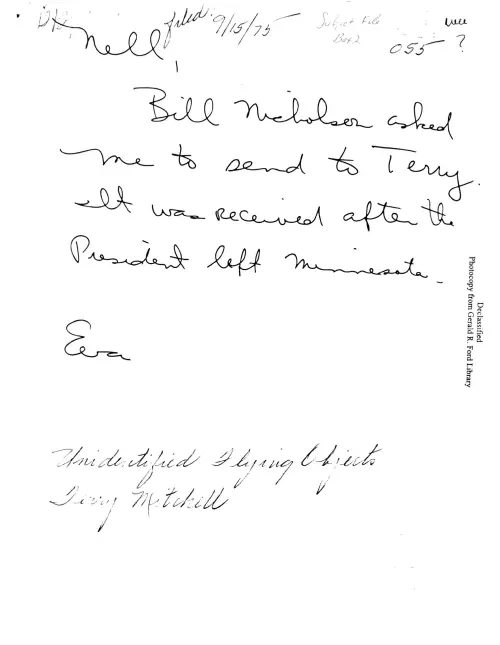 filed: 9/15/75
Subject File
Box 2
055 ?
Nell,
Bill Nicholson asked
me to send to Terry.
It was received after the
President left Minnesota.
Eva
Unidentified Flying Objects
Terry Mitchell
Declassified
Photocopy from Gerald R. Ford Library